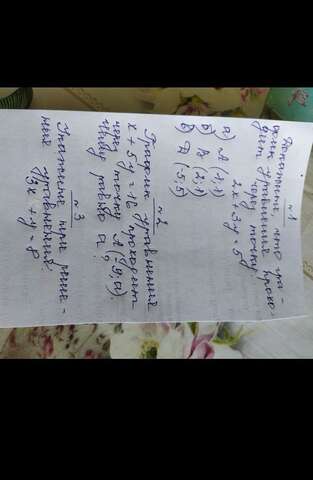 №1
Докажите, что гра-
фик уравнения прохо-
дит через точку
2x + 3y = 5
а) A (1;1)
б) B (2;1)
в) D (5;5)
№2
График уравнения
x + 5y = 12 проходит
через точку A (-9;a)
чему равно a?
№3
Укажите три реше-
ния уравнения
3x + y = 8